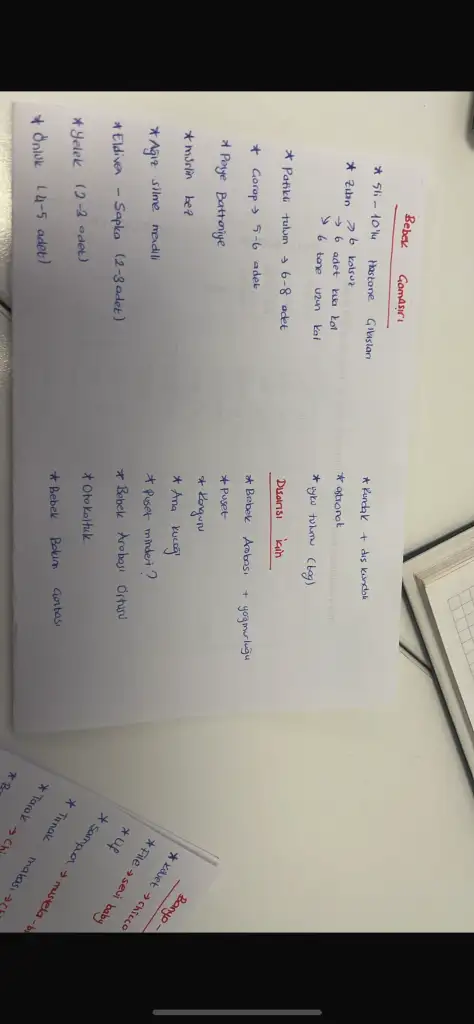 Bebek Çamaşırı
* 5li - 10'lu Hastane Çıkışları
* Zıbın → 6 kolsuz
→ 6 adet kısa kol
→ 6 tane uzun kol
* Patikli tulum → 6-8 adet
* Çorap → 5-6 adet
* Penye Battaniye
* müslin bez
* Ağız silme mendili
* Eldiven - Şapka (2-3 adet)
* Yelek (2-3 adet)
* Önlük (4-5 adet)
* Kundak + dış kundak
* astronot
* uyku tulumu (bag)
Dışarısı için
* Bebek Arabası + yağmurluğu
* Puset
* Kanguru
* Ana kucağı
* Puset minderi?
* Bebek Arabası Örtüsü
* Oto koltuk
* Bebek Bakım Çantası
Banyo -
* Küvet → chicco
* File → sevi baby
* Lif
* Şampuan → mustela - b
* Tırnak makası → c
* Tarak → chi